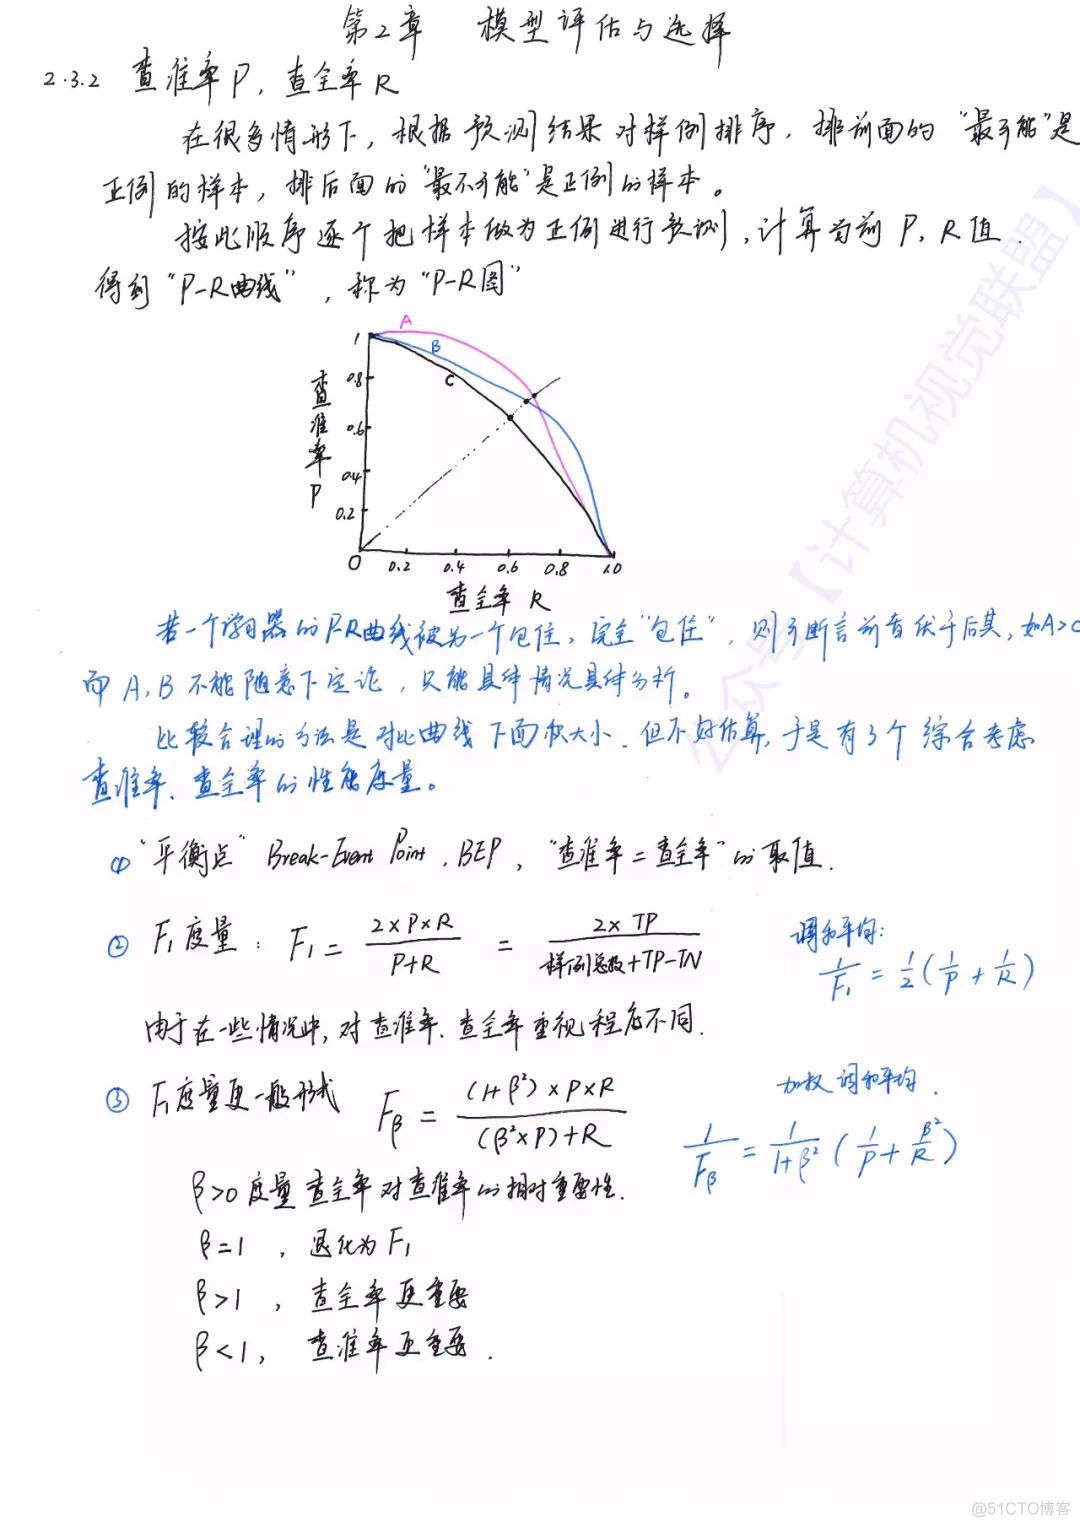 第2章 模型评估与选择
2.3.2 查准率P,查全率R
在很多情形下,根据预测结果对样例排序,排前面的"最可能"是
正例的样本,排后面的"最不可能"是正例的样本。
按此顺序逐个把样本做为正例进行预测,计算当前P,R值.
得到"P-R曲线",称为"P-R图"
A
B
C
1
0.8
0.6
0.4
0.2
查准率P
0 0.2 0.4 0.6 0.8 1.0
查全率 R
若一个学习器的P-R曲线被另一个包住,完全"包住",则可断言前者优于后其,如A>C
而A,B不能随意下定论,只能具体情况具体分析。
比较合理的方法是对比曲线下面积大小.但不好估算,于是有3个综合考虑
查准率、查全率的性能度量。
① "平衡点" Break-Event Point,BEP,"查准率=查全率"的取值.
② F₁度量: F₁ = 2×P×R / P+R = 2×TP / 样例总数+TP-TN
调和平均:
1/F₁ = 1/2 (1/P + 1/R)
由于在一些情况中,对查准率、查全率重视程度不同.
③ F₁度量更一般形式 Fβ = (1+β²)×P×R / (β²×P)+R
加权调和平均.
1/Fβ = 1/1+β² (1/P + β²/R)
β>0度量查全率对查准率的相对重要性.
β=1,退化为F₁
β>1,查全率更重要
β<1,查准率更重要.
公众号【计算机视觉联盟】
@51CTO博客